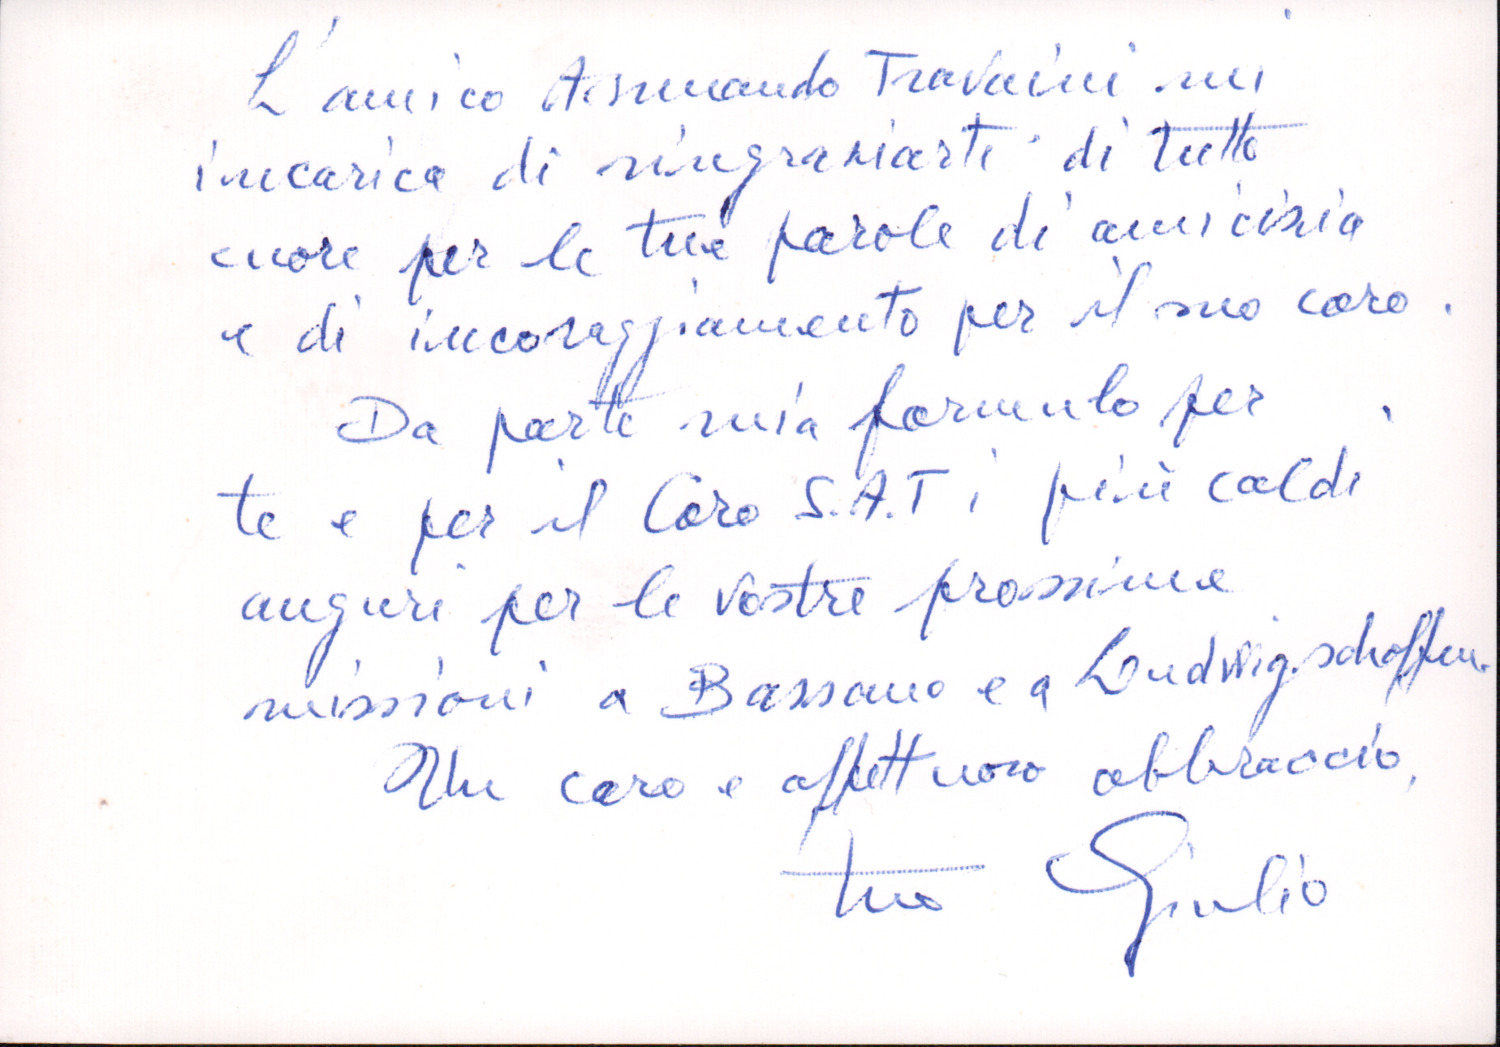 L'amico Armando Travaini mi
incarica di ringraziarti di tutto
cuore per le tue parole di amicizia
e di incoraggiamento per il suo coro.
Da parte mia formulo per
te e per il Coro S.A.T i più caldi
auguri per le vostre prossime
missioni a Bassano e a Ludwigschaffen.
Un caro e affettuoso abbraccio,
tuo Giulio